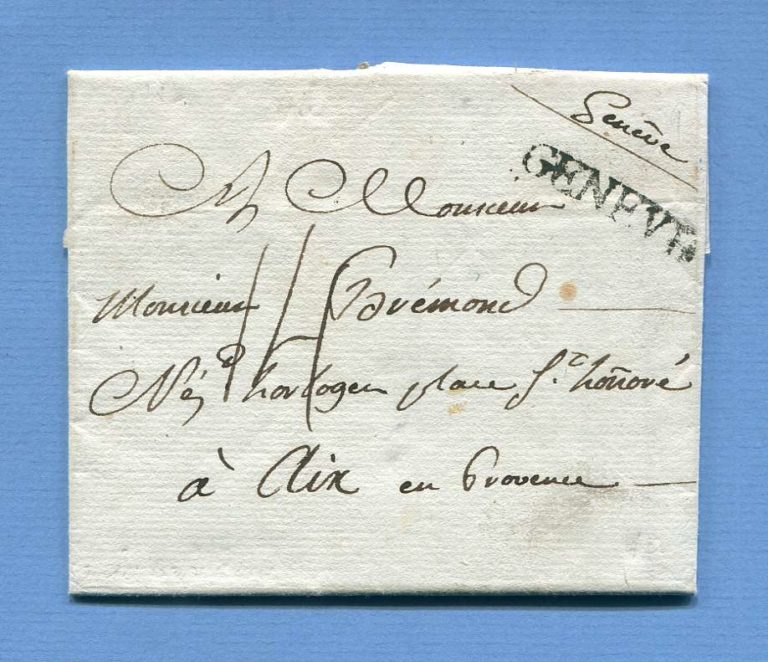 Genève
GENEVE
A Monsieur
Monsieur Brémond
Nég.t horloger place S.t honoré
à Aix en Provence